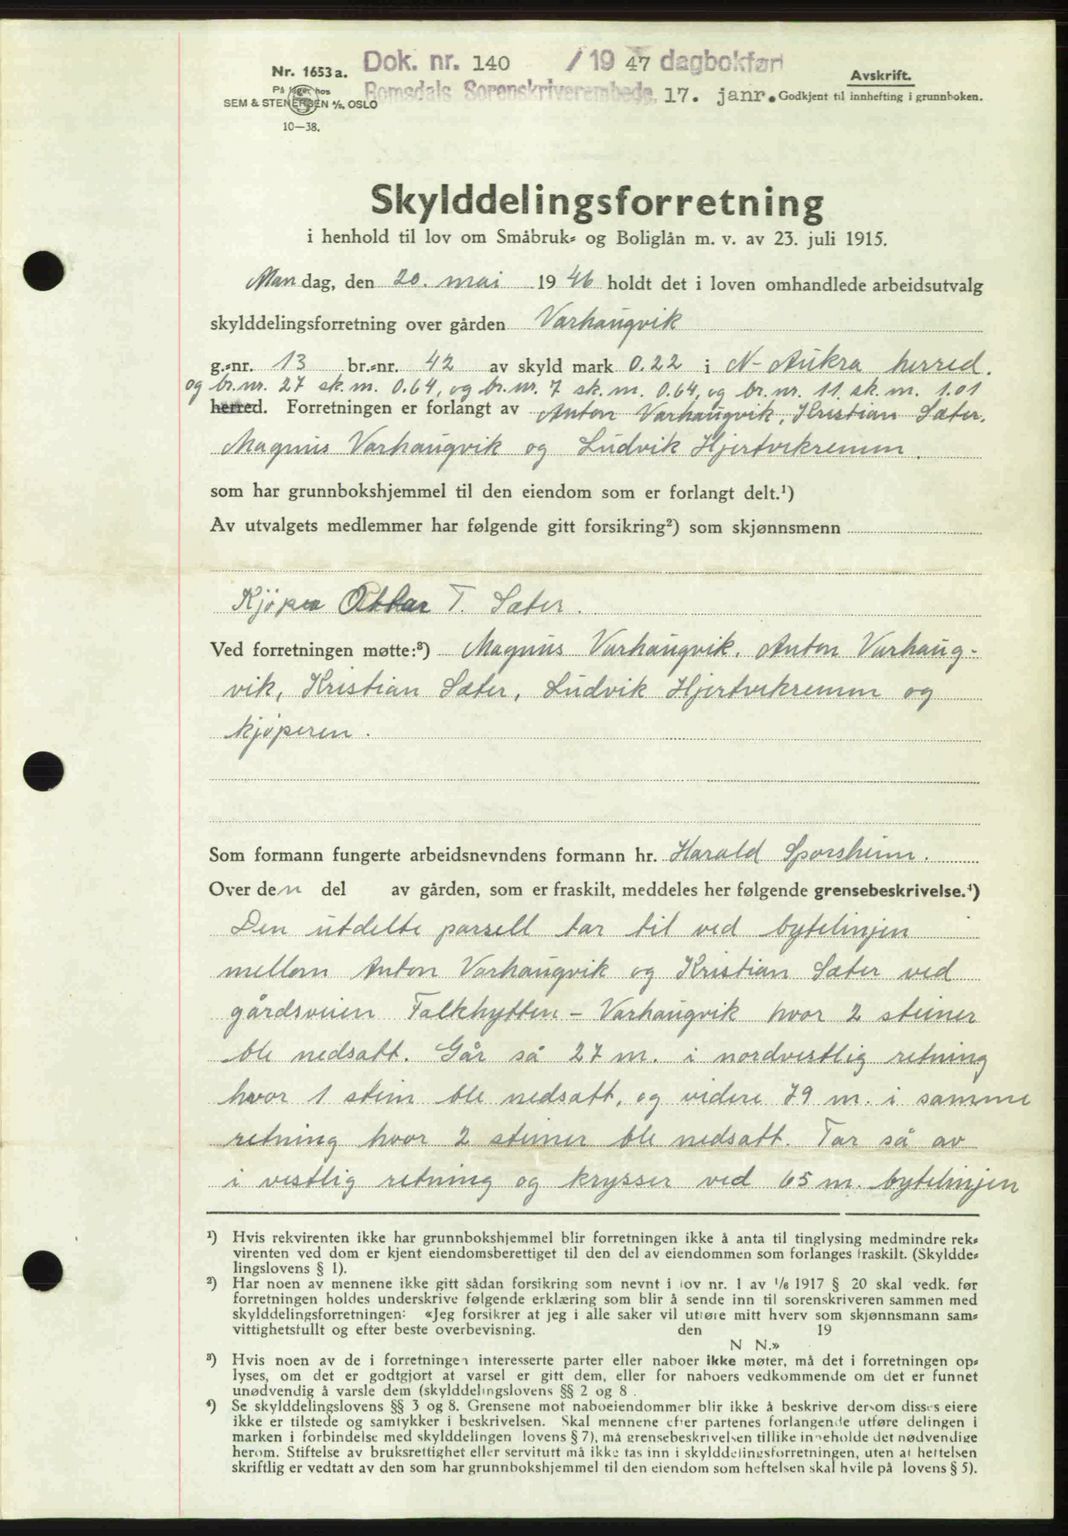 Nr. 1653 a.
På lager hos
SEM & STENERSEN A/S, OSLO
10—38.
Dok. nr. 140 / 19 47 dagbokført
Romsdals Sorenskriverembede, 17. janr.
Avskrift.
Godkjent til innhefting i grunnboken.
Skylddelingsforretning
i henhold til lov om Småbruk- og Boliglån m. v. av 23. juli 1915.
Mandag, den 20. mai 19 46 holdt det i loven omhandlede arbeidsutvalg
skylddelingsforretning over gården Varhaugvik
g.-nr. 13 br.-nr. 42 av skyld mark 0.22 i N-Aukra herred.
og br.nr. 27 sk.m. 0.64, og br.nr. 7 sk.m. 0.64, og br.nr. 11 sk.m. 1.01
herred. Forretningen er forlangt av Anton Varhaugvik, Kristian Sæter,
Magnus Varhaugvik og Ludvik Hjertvikremm.
som har grunnbokshjemmel til den eiendom som er forlangt delt.¹)
Av utvalgets medlemmer har følgende gitt forsikring²) som skjønnsmenn
Kjøper Ottar T. Sæter.
Ved forretningen møtte:³) Magnus Varhaugvik, Anton Varhaug-
vik, Kristian Sæter, Ludvik Hjertvikremm og
kjøperen.
Som formann fungerte arbeidsnevndens formann hr. Harald Sporsheim.
Over den del av gården, som er fraskilt, meddeles her følgende grensebeskrivelse.⁴)
Den utdelte parsell tar til ved bytelinjen
mellom Anton Varhaugvik og Kristian Sæter ved
gårdsveien Falkhytten – Varhaugvik hvor 2 steiner
ble nedsatt. Går så 27 m. i nordvestlig retning
hvor 1 stein ble nedsatt, og videre 79 m. i samme
retning hvor 2 steiner ble nedsatt. Tar så av
i vestlig retning og krysser ved 65 m. bytelinjen
¹) Hvis rekvirenten ikke har grunnbokshjemmel blir forretningen ikke å anta til tinglysing medmindre rek-
virenten ved dom er kjent eiendomsberettiget til den del av eiendommen som forlanges fraskilt. (Skyldde-
lingslovens § 1).
²) Har noen av mennene ikke gitt sådan forsikring som nevnt i lov nr. 1 av 1/6 1917 § 20 skal vedk. før
forretningen holdes underskrive følgende erklæring som blir å sende inn til sorenskriveren sammen med
skylddelingsforretningen: «Jeg forsikrer at jeg i alle saker vil utføre mitt hverv som skjønnsmann sam-
vittighetsfullt og efter beste overbevisning. den 19
N N.»
³) Hvis noen av de i forretningen interesserte parter eller naboer ikke møter, må det i forretningen op-
lyses, om det er godtgjort at varsel er gitt dem, eller for naboers vedkommende om det er funnet
unødvendig å varsle dem (skylddelingslovens §§ 2 og 8.
⁴) Se skylddelingslovens §§ 3 og 8. Grensene mot naboeiendommer blir ikke å beskrive dersom disses eiere
ikke er tilstede og samtykker i beskrivelsen. Skal mennene efter partenes forlangende utføre delingen i
marken i forbindelse med skylddelingen lovens § 7), må grensebeskrivelsen tillike inneholde det nødvendige
herom. Stiftelse av bruksrettighet eller servitutt må ikke tas inn i skylddelingsforretningen, uten at heftelsen
skriftlig er vedtatt av den som har grunnbokshjemmel til den eiendom som heftelsen skal hvile på lovens § 5).